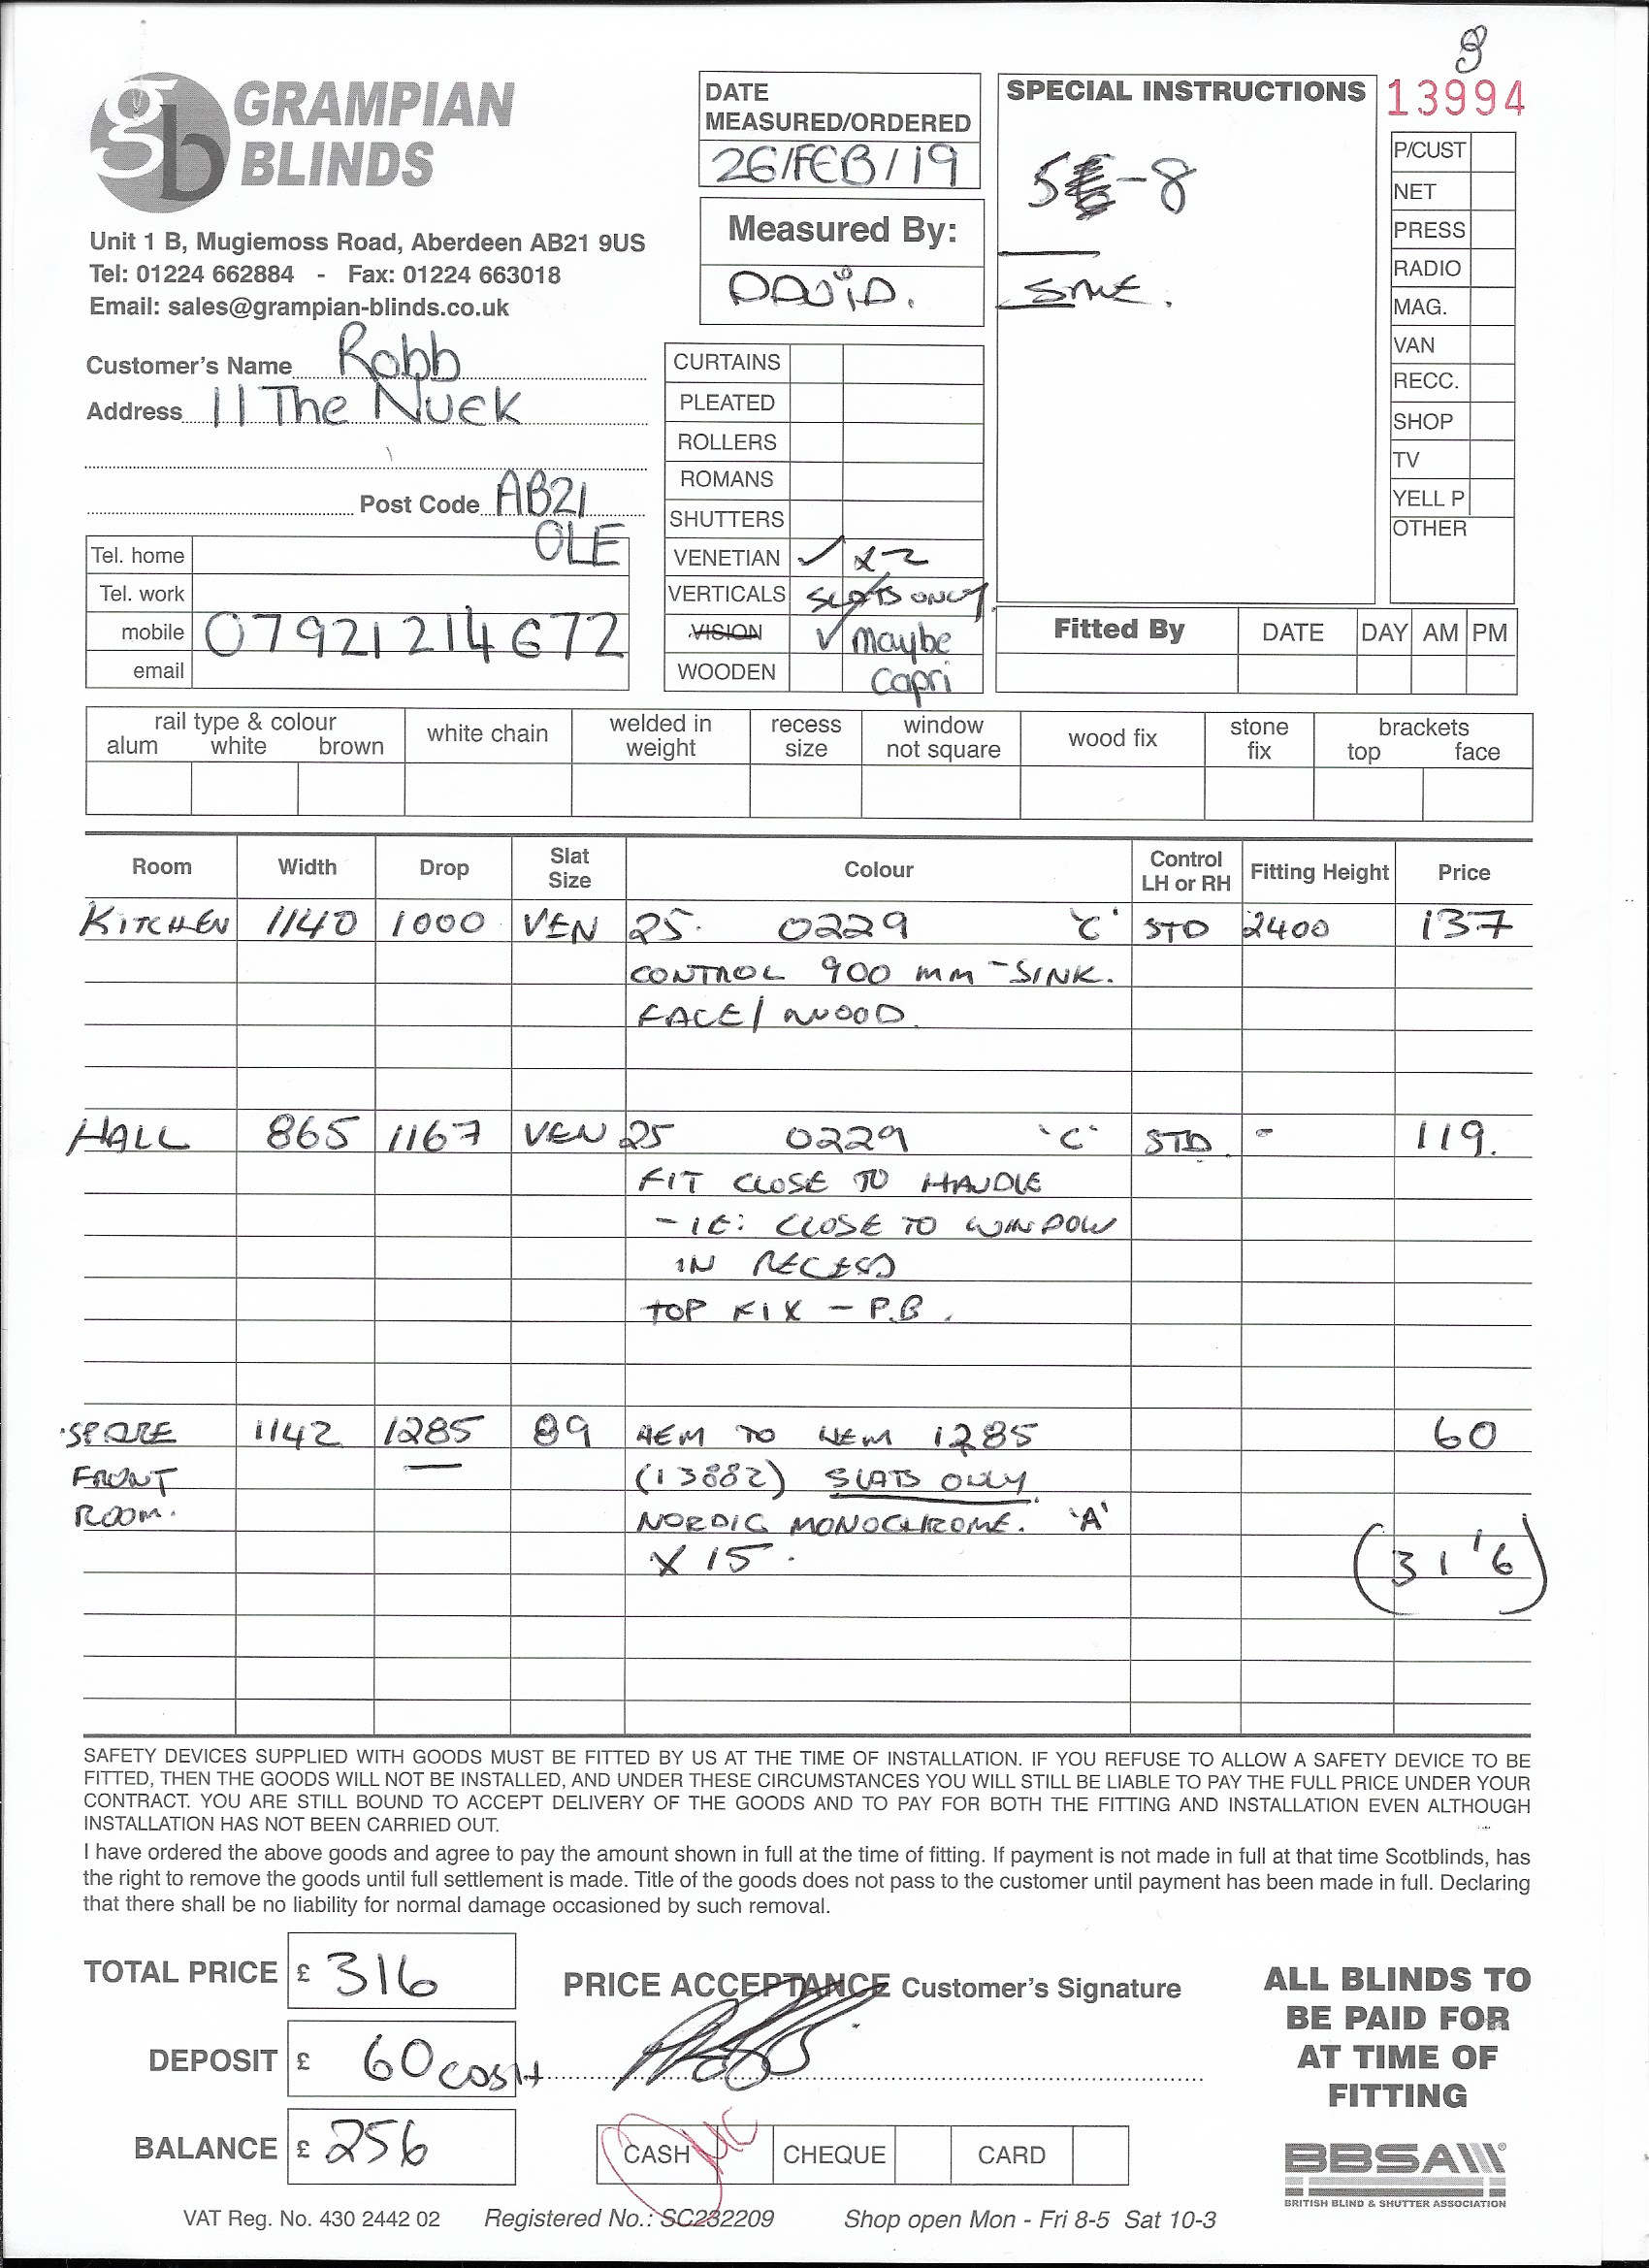 GRAMPIAN
BLINDS
Unit 1 B, Mugiemoss Road, Aberdeen AB21 9US
Tel: 01224 662884 - Fax: 01224 663018
Email: sales@grampian-blinds.co.uk
Customer's Name Robb
Address 11 The Nuek
Post Code AB21
OLE
Tel. home
Tel. work
mobile 07921214672
email
DATE
MEASURED/ORDERED
26/FEB/19
Measured By:
DAVID.
CURTAINS
PLEATED
ROLLERS
ROMANS
SHUTTERS
VENETIAN ✓ x2
VERTICALS SLATS ONLY
VISION ✓ Maybe
WOODEN Capri
SPECIAL INSTRUCTIONS
5 -8
13994
P/CUST
NET
PRESS
RADIO
MAG.
VAN
RECC.
SHOP
TV
YELL P
OTHER
Fitted By DATE DAY AM PM
rail type & colour
alum white brown
white chain
welded in
weight
recess
size
window
not square
wood fix
stone
fix
brackets
top face
Room Width Drop Slat Size Colour Control LH or RH Fitting Height Price
KITCHEN 1140 1000 VEN 25. 0229 'C' STD 2400 137
CONTROL 900 mm - SINK.
FACE / WOOD.
HALL 865 1167 VEN 25 0229 'C' STD. - 119.
FIT CLOSE TO HANDLE
- IE: CLOSE TO WINDOW
IN RECESS
TOP FIX - P.B.
SPARE 1142 1285 89 HEM TO HEM 1285 60
FRONT (13882) SLATS ONLY.
ROOM. NORDIC MONOCHROME. 'A'
X 15.
(31'6)
SAFETY DEVICES SUPPLIED WITH GOODS MUST BE FITTED BY US AT THE TIME OF INSTALLATION. IF YOU REFUSE TO ALLOW A SAFETY DEVICE TO BE
FITTED, THEN THE GOODS WILL NOT BE INSTALLED, AND UNDER THESE CIRCUMSTANCES YOU WILL STILL BE LIABLE TO PAY THE FULL PRICE UNDER YOUR
CONTRACT. YOU ARE STILL BOUND TO ACCEPT DELIVERY OF THE GOODS AND TO PAY FOR BOTH THE FITTING AND INSTALLATION EVEN ALTHOUGH
INSTALLATION HAS NOT BEEN CARRIED OUT.
I have ordered the above goods and agree to pay the amount shown in full at the time of fitting. If payment is not made in full at that time Scotblinds, has
the right to remove the goods until full settlement is made. Title of the goods does not pass to the customer until payment has been made in full. Declaring
that there shall be no liability for normal damage occasioned by such removal.
TOTAL PRICE £ 316
DEPOSIT £ 60 cash
BALANCE £ 256
PRICE ACCEPTANCE Customer's Signature
CASH CHEQUE CARD
ALL BLINDS TO
BE PAID FOR
AT TIME OF
FITTING
BBSA
BRITISH BLIND & SHUTTER ASSOCIATION
VAT Reg. No. 430 2442 02 Registered No.: SC232209 Shop open Mon - Fri 8-5 Sat 10-3